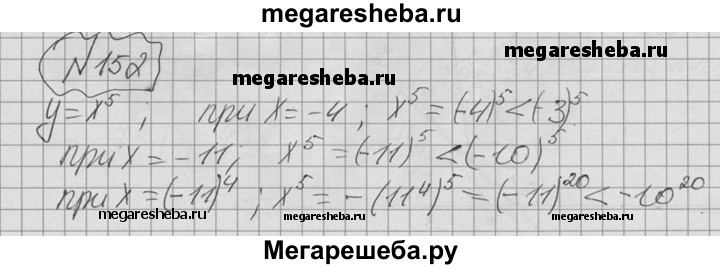 megaresheba.ru
N 152
megaresheba.ru
megaresheba.ru
y = x⁵, при x = -4; x⁵ = (-4)⁵ < (-3)⁵
при x = -11; x⁵ = (-11)⁵ < (-10)⁵
при x = (-11)⁴; x⁵ = -(11⁴)⁵ = (-11)²⁰ < -10²⁰
megaresheba.ru
megaresheba.ru
megaresheba.ru
Мегарешеба.ру